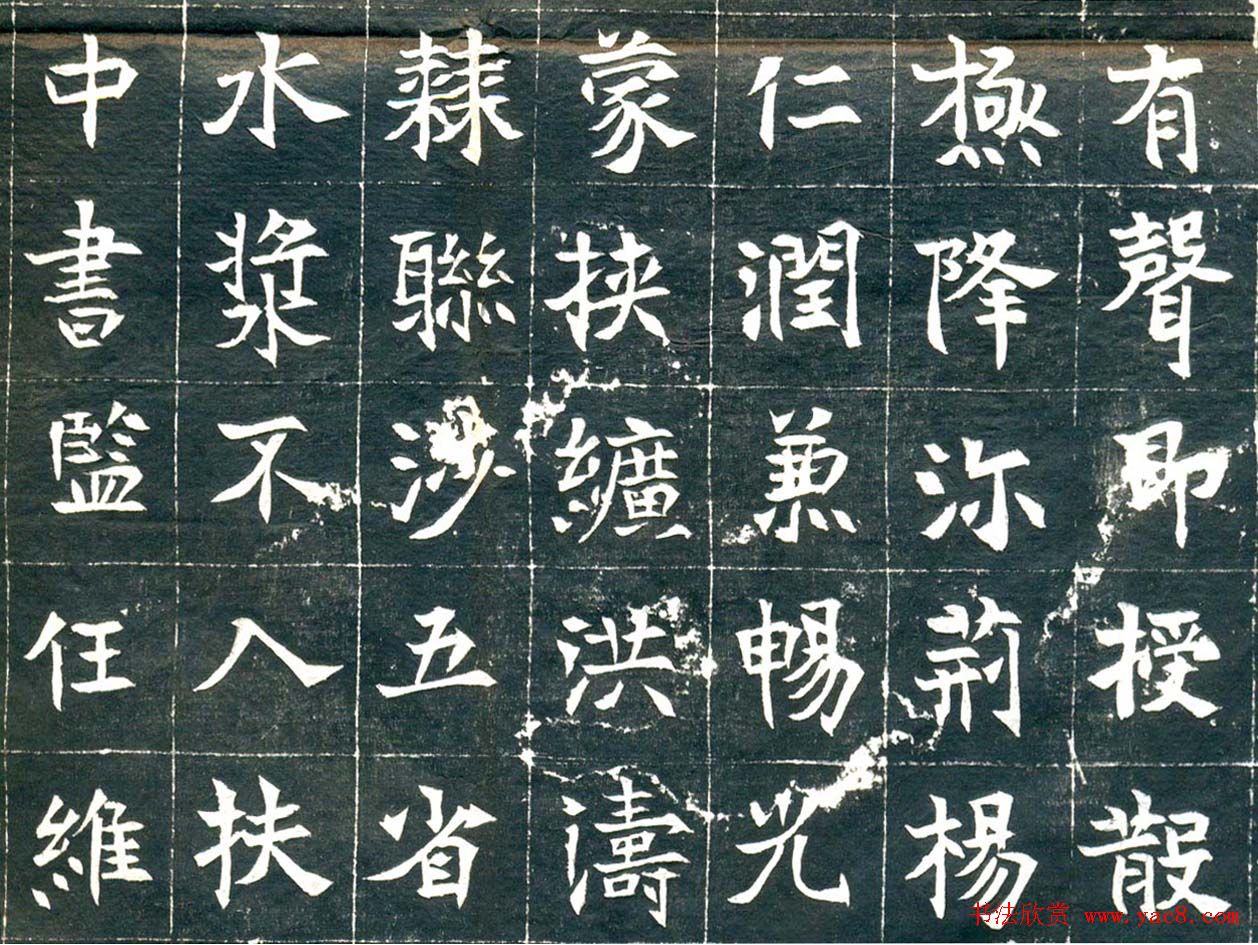 有聲即授散
極降沵荊楊
仁潤兼暢光
蒙挾纊洪濤
棘聯涉五省
水漿不入扶
中書監任維
书法欣赏 www.yac8.com